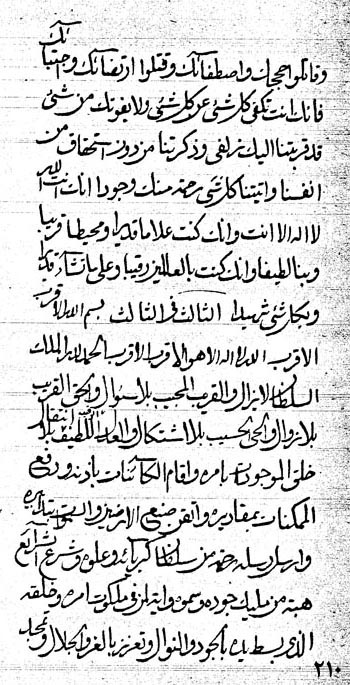 وقاتلوا حججك واصطفائك وقتلوا ارتضائك واجتبائك
فانك انت تكفي كلشئ عن كلشئ ولا يفوتك من شئ
قد قربتنا اليك زلفى وذكرتنا من دون استحقاق من
انفسنا واتيتنا كلشئ رحمة منك وجودا انك انت الله
لا اله الا انت وانك كنت علاما قديرا ومحيطا قريبا
وبنا لطيفا وانك كنت بالعالمين رقيبا وعلى ما تشاء قديرا
وبكلشئ شهيدا الثالث في الثالث بسم الله الاقرب
الاقرب الله لا اله الا هو الاقرب الاقرب الحمد لله الملك
السلطان لايزال والقرب المجيب بلا سؤال والحق القريب
بلا زوال والحي الحسيب بلا اشتكال والعدل اللطيف بلا انتقال
خلق الموجودات بامره واقام الكائنات باذنه ورفع
الممكنات بمقاديره واتقن صنع الارضين والسموات بتدابيره
وارسل رسله رحمة من سلطان كبريائه وعلوه وشرع الشرائع
هبة من مليك جوده وسموه واية لمن في ملكوت امره وخلقه
الذي بسط يده بالجود والنوال وتعزز بالعز والجلال وتمجد
٢١٠